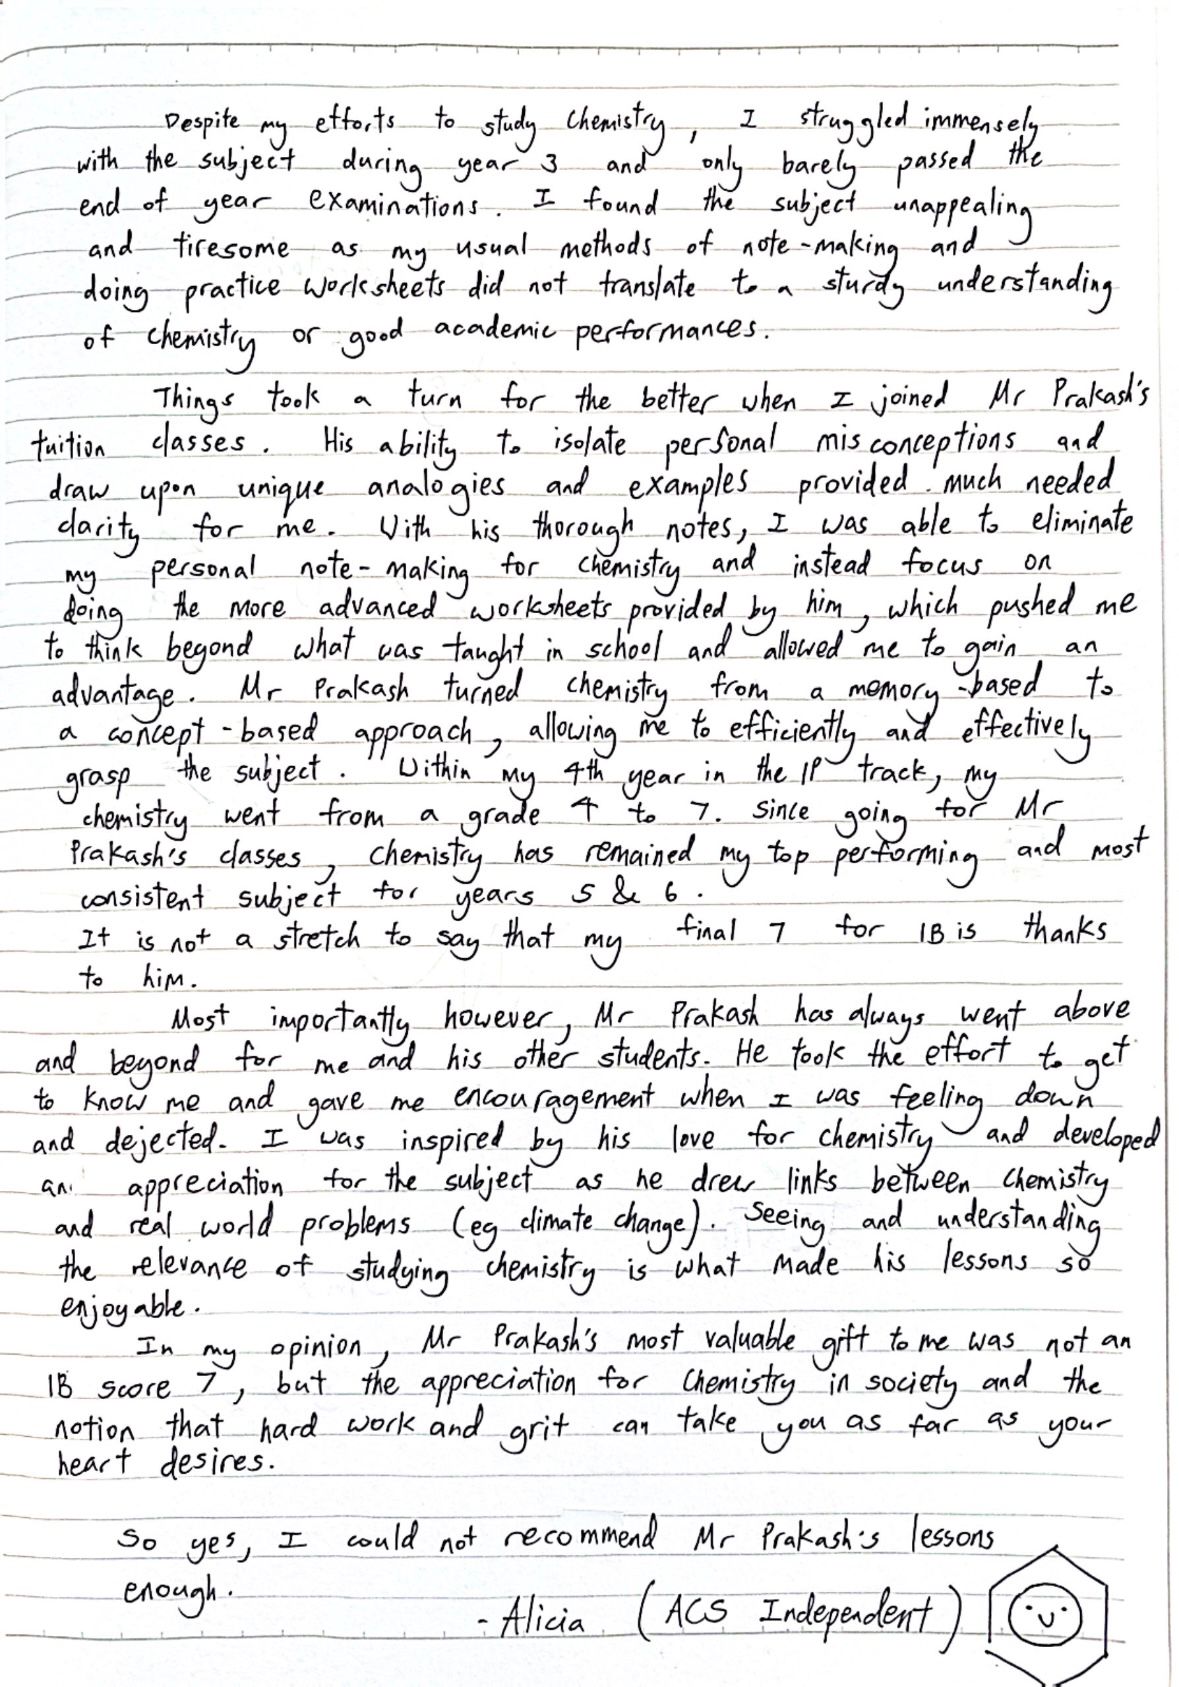 Despite my efforts to study Chemistry, I struggled immensely
with the subject during year 3 and only barely passed the
end of year examinations. I found the subject unappealing
and tiresome as my usual methods of note-making and
doing practice worksheets did not translate to a sturdy understanding
of chemistry or good academic performances.
Things took a turn for the better when I joined Mr Prakash's
tuition classes. His ability to isolate personal misconceptions and
draw upon unique analogies and examples provided much needed
clarity for me. With his thorough notes, I was able to eliminate
my personal note-making for chemistry and instead focus on
doing the more advanced worksheets provided by him, which pushed me
to think beyond what was taught in school and allowed me to gain an
advantage. Mr Prakash turned chemistry from a memory-based to
a concept-based approach, allowing me to efficiently and effectively
grasp the subject. Within my 4th year in the IP track, my
chemistry went from a grade 4 to 7. Since going for Mr
Prakash's classes, chemistry has remained my top performing and most
consistent subject for years 5 & 6.
It is not a stretch to say that my final 7 for IB is thanks
to him.
Most importantly however, Mr Prakash has always went above
and beyond for me and his other students. He took the effort to get
to know me and gave me encouragement when I was feeling down
and dejected. I was inspired by his love for chemistry and developed
an appreciation for the subject as he drew links between chemistry
and real world problems (eg climate change). Seeing and understanding
the relevance of studying chemistry is what made his lessons so
enjoyable.
In my opinion, Mr Prakash's most valuable gift to me was not an
IB score 7, but the appreciation for Chemistry in society and the
notion that hard work and grit can take you as far as your
heart desires.
So yes, I could not recommend Mr Prakash's lessons
enough.
- Alicia (ACS Independent)